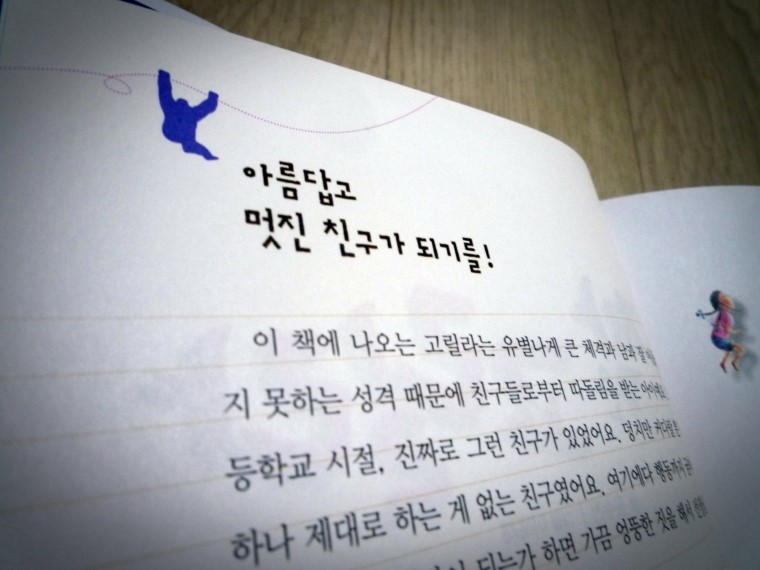 아름답고
멋진 친구가 되기를!
이 책에 나오는 고릴라는 유별나게 큰 체격과 남과 잘
지 못하는 성격 때문에 친구들로부터 따돌림을 받는
등학교 시절, 진짜로 그런 친구가 있었어요. 덩치만 커다랄 뿐
하나 제대로 하는 게 없는 친구였어요. 여기에다 행동까지
되는가 하면 가끔 엉뚱한 짓을 해서